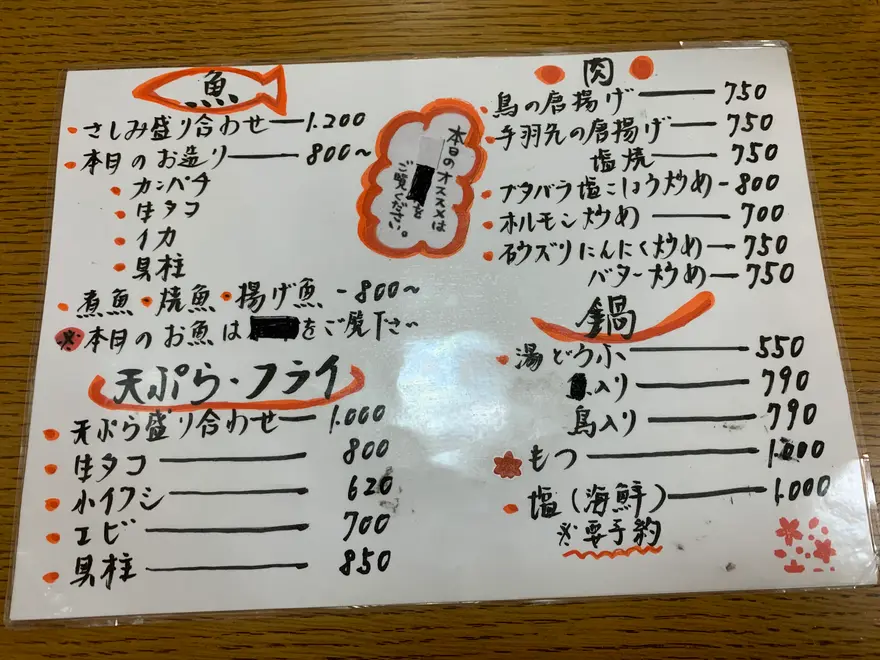 魚
さしみ盛り合わせ 1.200
本日のお造り 800~
カンパチ
生タコ
イカ
貝柱
煮魚・焼魚・揚げ魚 -800~
※本日のお魚は をご覧下さい
本日のオススメは
を
ご覧ください。
天ぷら・フライ
天ぷら盛り合わせ 1.000
生タコ 800
小イワシ 620
エビ 700
貝柱 850
肉
鳥の唐揚げ 750
手羽先の唐揚げ 750
塩焼 750
ブタバラ塩こしょう炒め 800
ホルモン炒め 700
砂ズリにんにく炒め 750
バター炒め 750
鍋
湯どうふ 550
入り 790
鳥入り 790
もつ 1.000
塩(海鮮) 1.000
※要予約